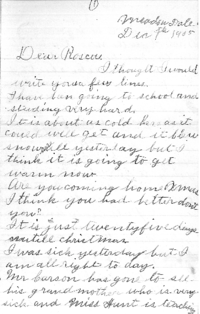 Meadow Dale
Dec 9th 1905
Dear Roscoe
I thought I would
write you a few lines.
I have ben going to school and
studing very hard.
It is about as cold here as it
could well get and it
snow all yesterday but I
think it is going to get
warm now
Are you coming home Xmas
I think you had better don't
you?
It is "just" twentyfive days
until christmas
I was sick yesterday but I
am all right to day.
Mr Carson has gone to see
his grandmother who is very
sick and Miss Hunt is teaching